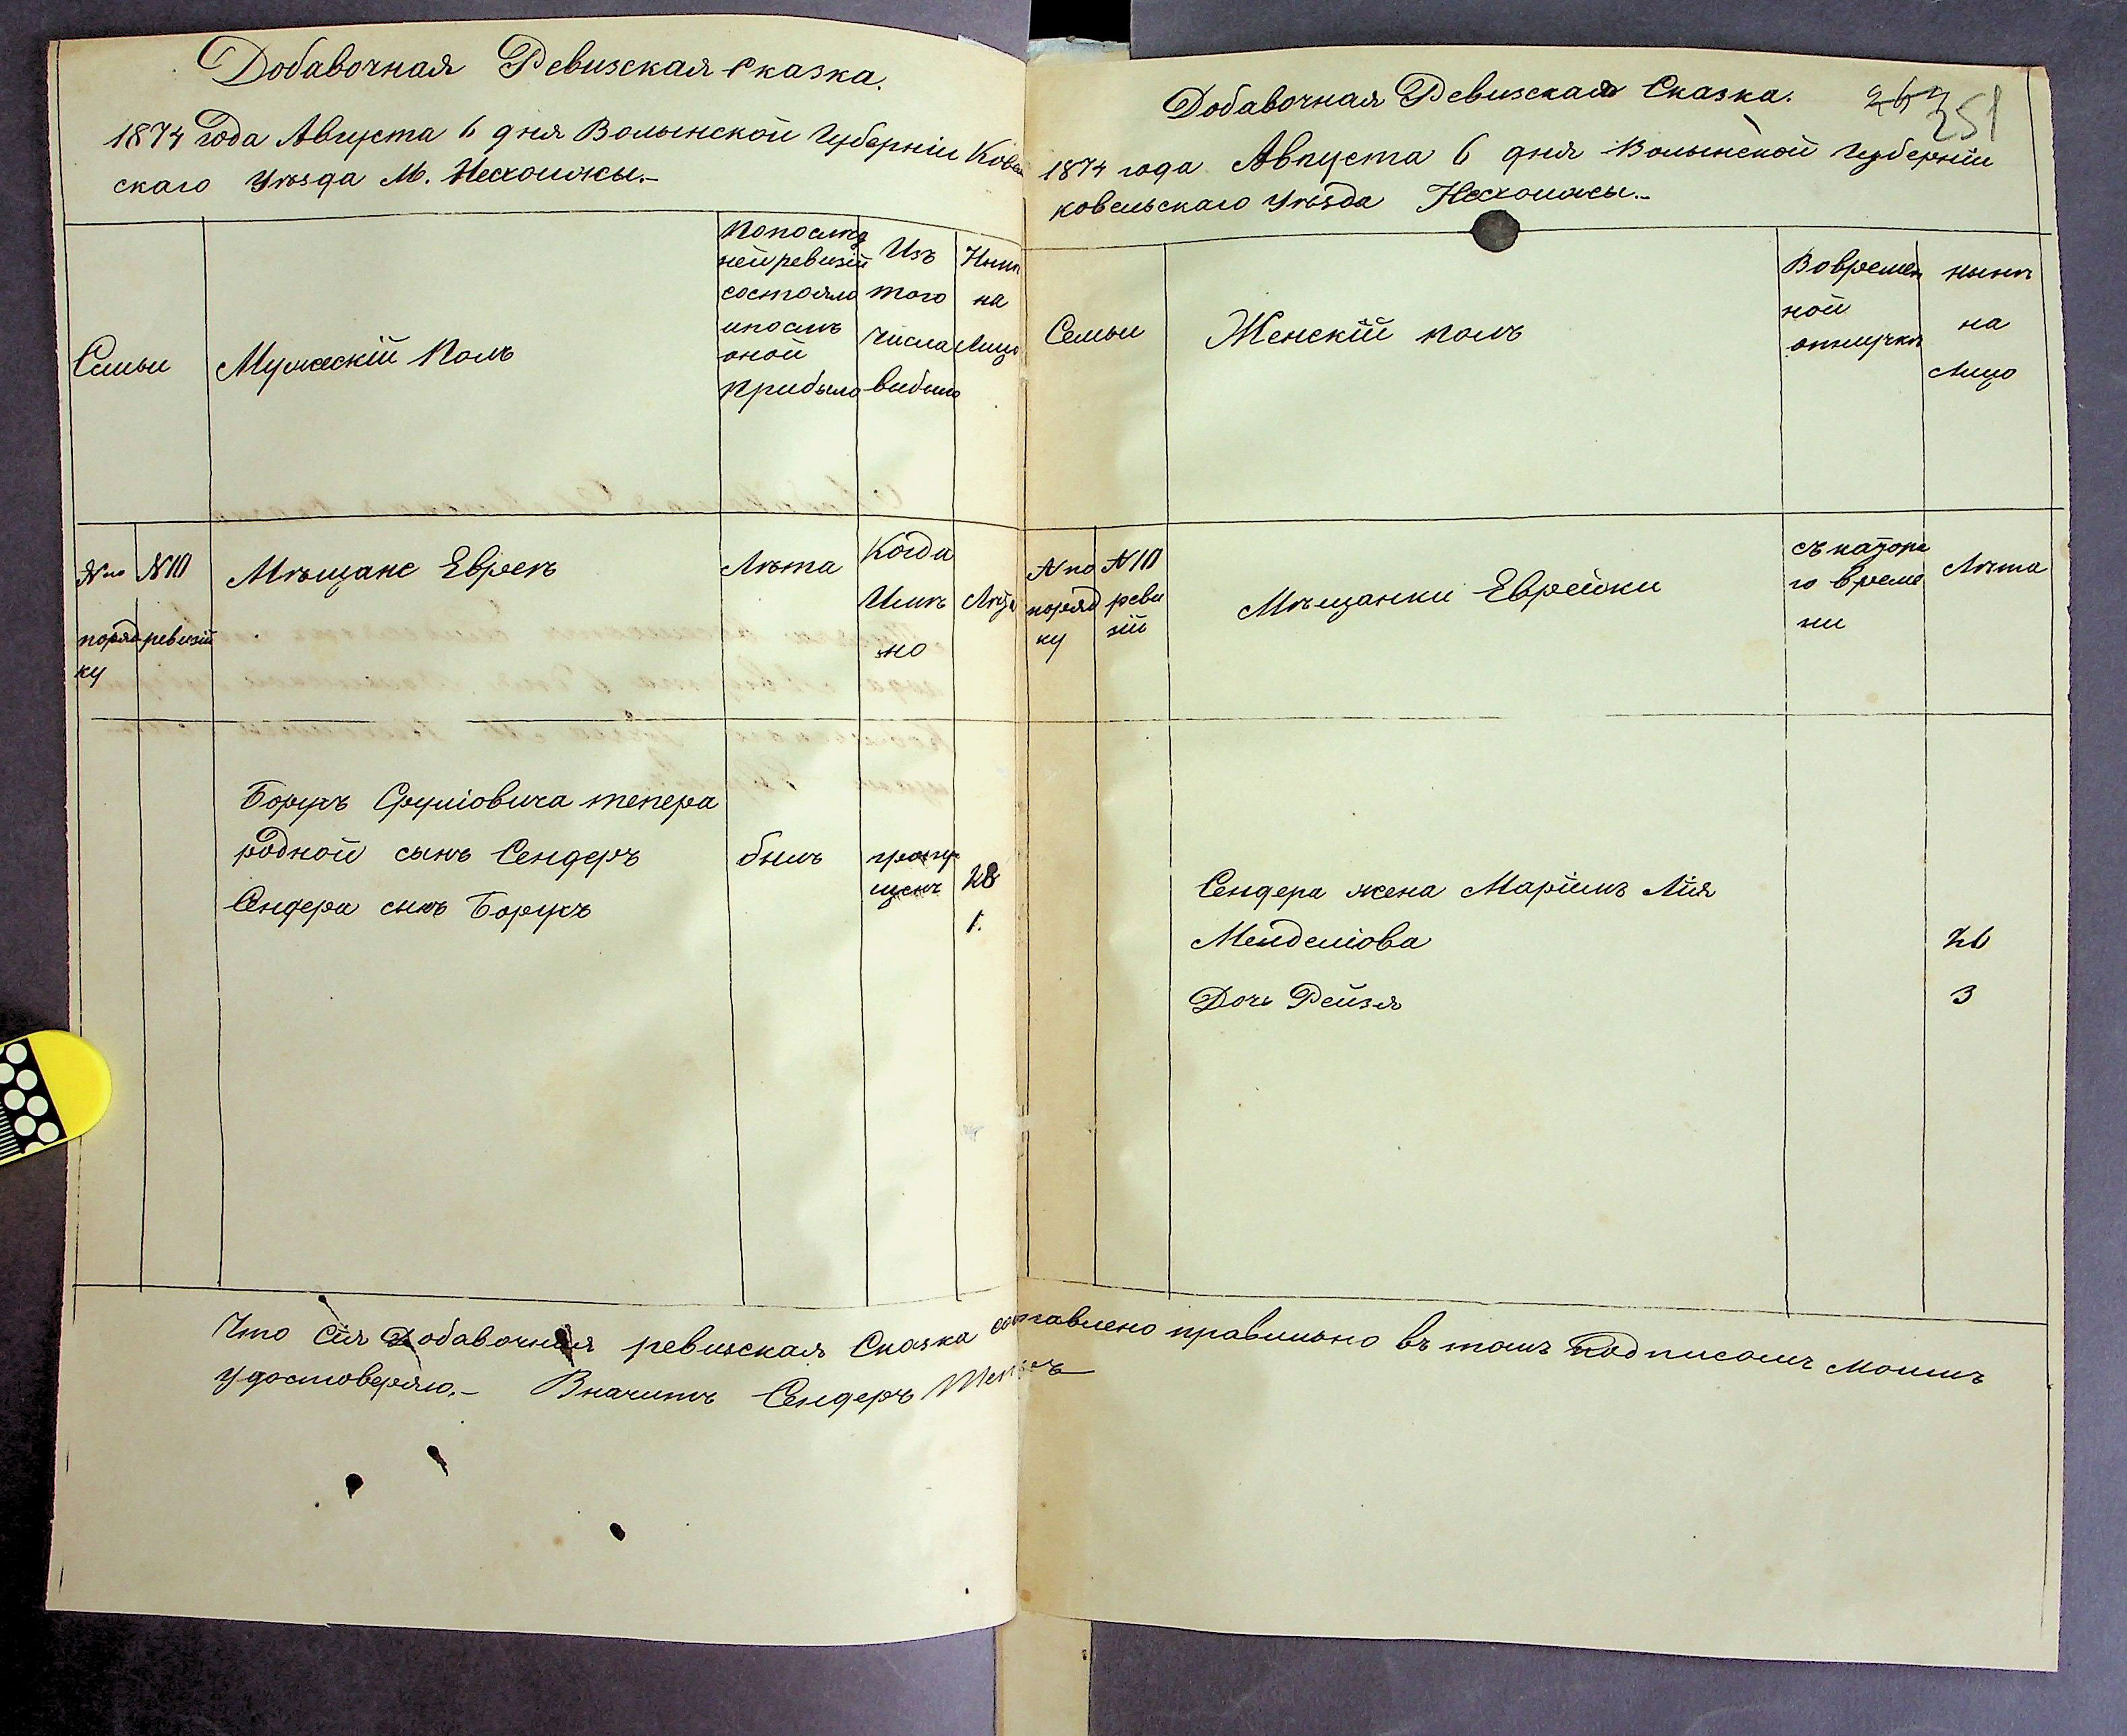 Добавочная Ревизская Сказка.
1874 года Августа 6 дня Волынской Губерніи Ковель
скаго Уѣзда М. Несхоижы.-
Семьи
Мужескій Полъ
Попослѣд
ней ревизіи
состояло
ипослѣ
оной
прибыло
Изъ
того
числа
выбыло
Нынѣ
на
Лицо
№ по
поряд
ку
№ 10
ревизіи
Мѣщане Евреи
Лѣта
Когда
Имѣ
но
Лѣта
Борухъ Срулiовича тепера
родной сынъ Сендеръ
былъ
пропу
щенъ
28
Сендера сынъ Борухъ
1.
Добавочная Ревизская Сказка.
251
1874 года Августа 6 дня Волынской Губерніи
ковельскаго Уѣзда Несхоижы.-
Семьи
Женскій полъ
Вовремен
ной
отлучкѣ
нынѣ
на
Лицо
№ по
поряд
ку
№ 10
реви
зіи
Мѣщанки Еврейки
съ катора
го време
ни
Лѣта
Сендера жена Маріимъ Лія
Менделіова
26
Дочь Рейзя
3
Что Сія Добавочная ревизская Сказка составлено правильно въ томъ подписомъ моимъ
удостоверяю.- Значитъ Сендеръ Теперъ